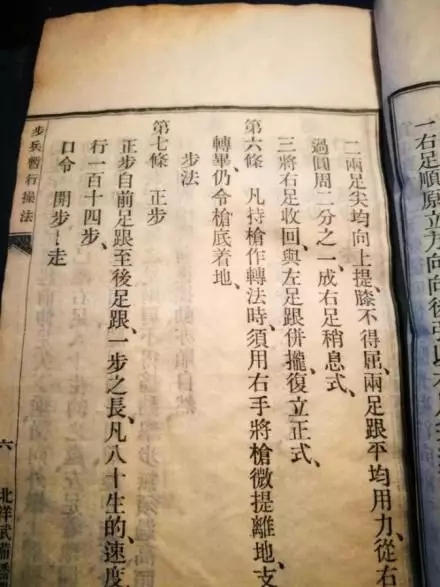 一右足順原立方向向後
二兩足尖均向上提、膝不得屈、兩足跟平均用力、從右
過圓周二分之一、成右足稍息式、
三將右足收回、與左足跟併攏、復立正式、
第六條 凡持槍作轉法時、須用右手將槍微提離地、支
轉畢仍令槍底着地、
步法
第七條 正步
正步自前足跟至後足跟、一步之長、凡八十生的、速度
行一百十四步、
口令 開步–走
步兵暫行操法
六
北洋武備